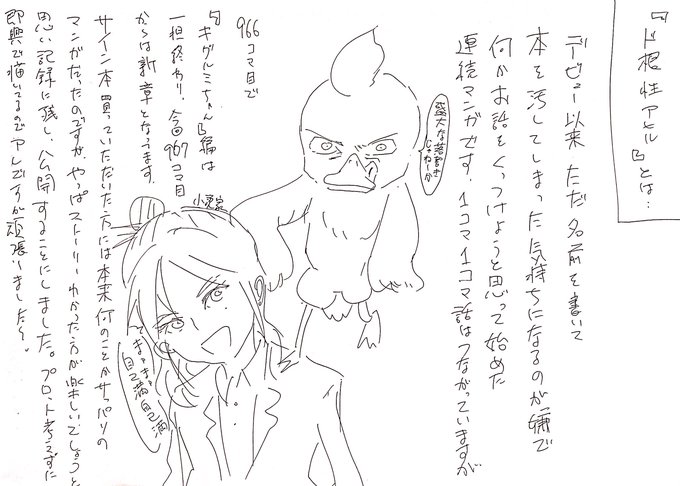 『ド根性アヒル』とは…
デビュー以来ただ名前を書いて
本を汚してしまった気持ちになるのが嫌で
何かお話をくっつけようと思って始めた
連続マンガです。1コマ1コマ話はつながっていますが
盛大な落書き
じゃねーか
966コマ目で
『キグルミちゃん』編は
一担終わり、今回967コマ目
からは新章となります。
小悪魔
まぁまぁ
自己満自己満
サイン本買っていただいた方には本来何のことかサッパリの
マンガだったのですが、やっぱストーリーわかった方が楽しいでしょうと
思い記録に残し、公開することにしました。プロット考えずに
即興で描いてるのでアレですが頑張りましたぞ。